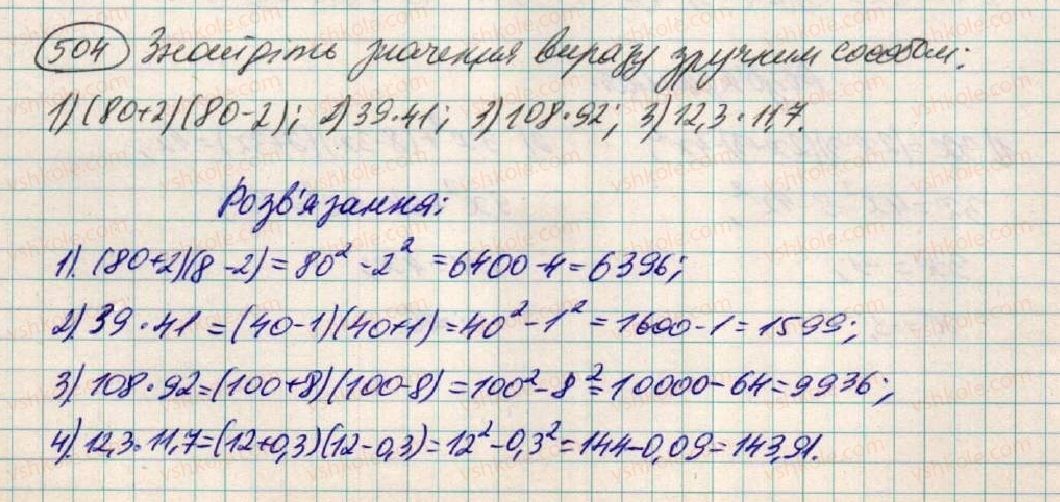 504 Знайдіть значення виразу зручним способом:
1) (80+2)(80-2); 2) 39·41; 3) 108·92; 3) 12,3·11,7.
Розв'язання:
1). (80+2)(8-2)=80²-2²=6400-4=6396;
2) 39·41=(40-1)(40+1)=40²-1²=1600-1=1599;
3) 108·92=(100+8)(100-8)=100²-8²=10000-64=9936;
4) 12,3·11,7=(12+0,3)(12-0,3)=12²-0,3²=144-0,09=143,91.